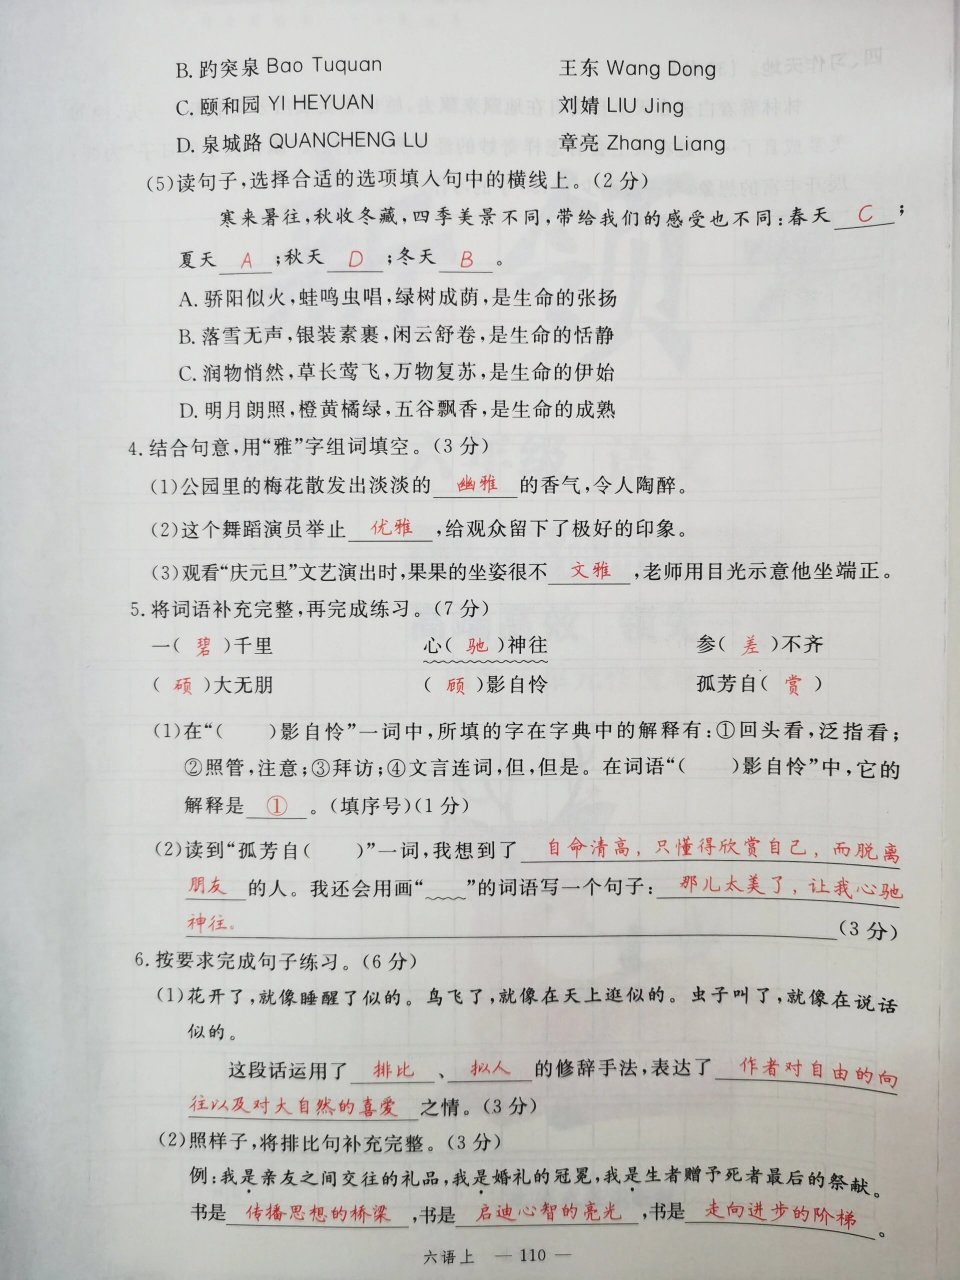 B. 趵突泉 Bao Tuquan 王东 Wang Dong
C. 颐和园 YI HEYUAN 刘婧 LIU Jing
D. 泉城路 QUANCHENG LU 章亮 Zhang Liang
(5)读句子,选择合适的选项填入句中的横线上。(2 分)
寒来暑往,秋收冬藏,四季美景不同,带给我们的感受也不同:春天 C ;
夏天 A ;秋天 D ;冬天 B 。
A. 骄阳似火,蛙鸣虫唱,绿树成荫,是生命的张扬
B. 落雪无声,银装素裹,闲云舒卷,是生命的恬静
C. 润物悄然,草长莺飞,万物复苏,是生命的伊始
D. 明月朗照,橙黄橘绿,五谷飘香,是生命的成熟
4. 结合句意,用“雅”字组词填空。(3 分)
(1)公园里的梅花散发出淡淡的 幽雅 的香气,令人陶醉。
(2)这个舞蹈演员举止 优雅 ,给观众留下了极好的印象。
(3)观看“庆元旦”文艺演出时,果果的坐姿很不 文雅 ,老师用目光示意他坐端正。
5. 将词语补充完整,再完成练习。(7 分)
一( 碧 )千里 心( 驰 )神往 参( 差 )不齐
( 硕 )大无朋 ( 顾 )影自怜 孤芳自( 赏 )
(1)在“( )影自怜”一词中,所填的字在字典中的解释有:①回头看,泛指看;
②照管,注意;③拜访;④文言连词,但,但是。在词语“( )影自怜”中,它的
解释是 ① 。(填序号)(1 分)
(2)读到“孤芳自( )”一词,我想到了 自命清高,只懂得欣赏自己,而脱离
朋友 的人。我还会用画“﹏﹏”的词语写一个句子: 那儿太美了,让我心驰
神往。 (3 分)
6. 按要求完成句子练习。(6 分)
(1)花开了,就像睡醒了似的。鸟飞了,就像在天上逛似的。虫子叫了,就像在说话
似的。
这段话运用了 排比 、 拟人 的修辞手法,表达了 作者对自由的向
往以及对大自然的喜爱 之情。(3 分)
(2)照样子,将排比句补充完整。(3 分)
例:我是亲友之间交往的礼品,我是婚礼的冠冕,我是生者赠予死者最后的祭献。
书是 传播思想的桥梁 ,书是 启迪心智的亮光 ,书是 走向进步的阶梯 。
六语上 — 110 —